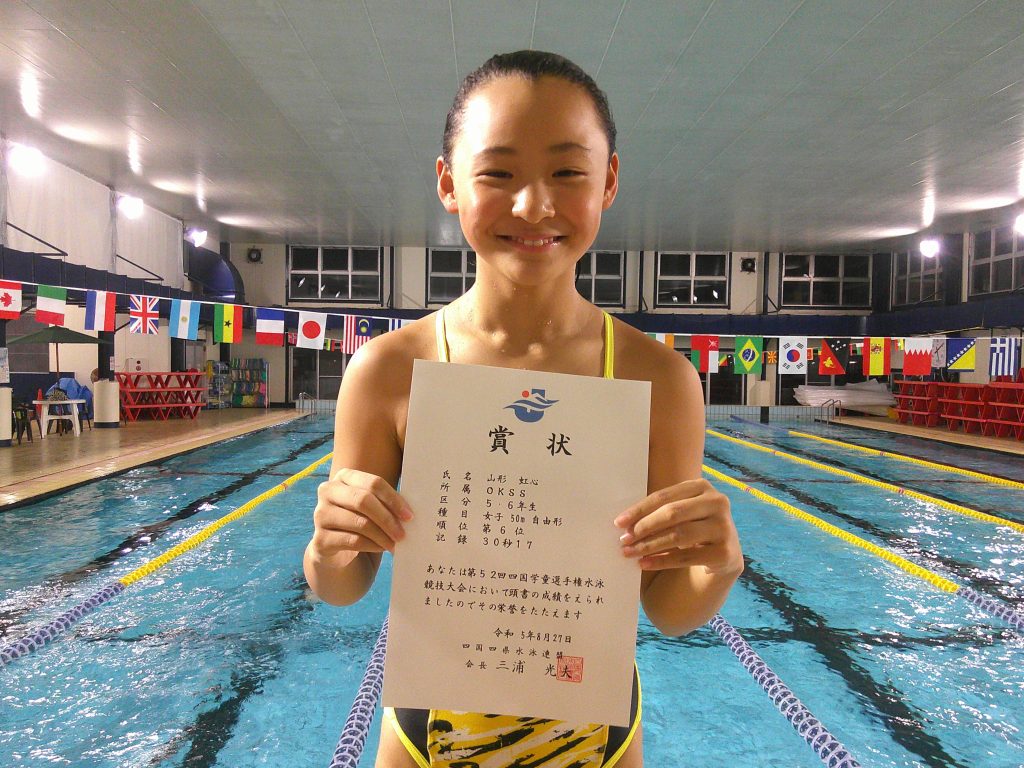 賞状
氏名 山形 虹心
所属 OKSS
区分 5・6年生
種目 女子 50m 自由形
順位 第6位
記録 30秒17
あなたは第52回四国学童選手権水泳
競技大会において頭書の成績をえられ
ましたのでその栄誉をたたえます
令和 5年8月27日
四国四県水泳連盟
会長 三浦 光夫